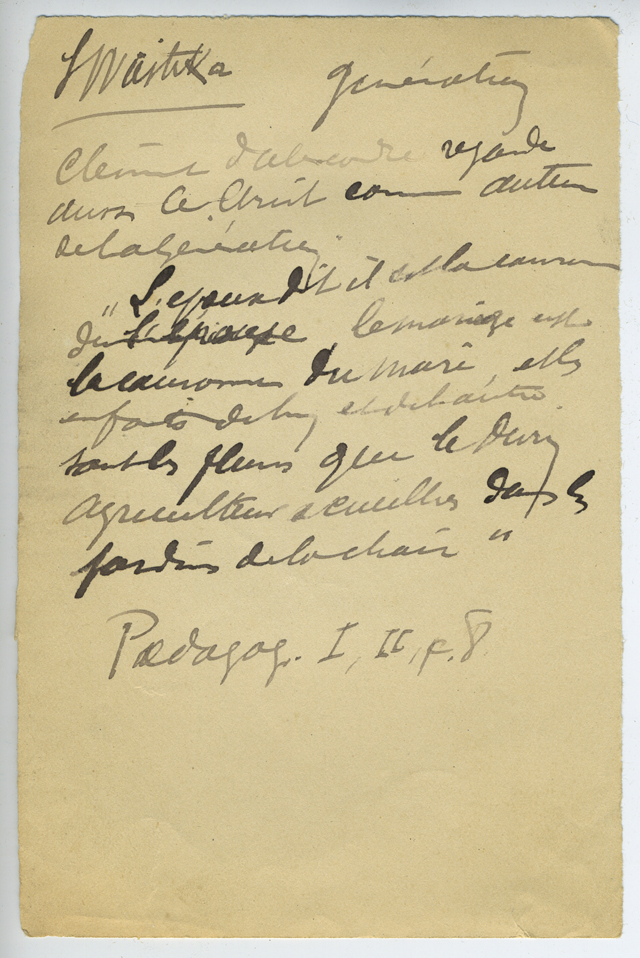 Swastika génération
Clément d'alexandre regarde
aussi le Christ comme auteur
de la génération
"L'époux dit il est la couronne
de l'épouse le mariage est
la couronne du mari, et les
enfants de l'un et de l'autre
sont les fleurs que le divin
agriculteur recueille dans les
jardins de la chair"
Pædagog. I, II, c. 8